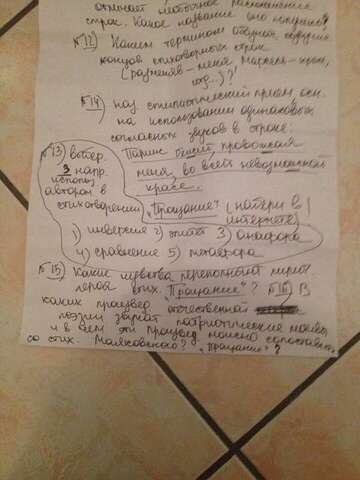 отмечает необычное расположение
строк. Какое название оно получило?
№12) Каким термином обознач. созвучие
концов стихотворных строк
(разменяв - меня, Марселя - хрип,
изд...)?
№14) наз. стилистический прием, осн.
на использовании одинаковых
согласных звуков в строке:
Париж бежит, провожая
меня, во всей невозможной
красе.
№13) выбер.
3 напр.
использ
автором в
стихотворении
"Прощание" (найти в
интернете)
1) инверсия 2) эпитет 3) анафора
4) сравнение 5) метафора
№15) Какие чувства переполняют лирич.
героя стих. "Прощание"? №16) В
каких произвед. отечественной
поэзии звучат патриотические мотивы
и в чем эти произвед. можно сопоставить
со стих. Маяковского "Прощание"?